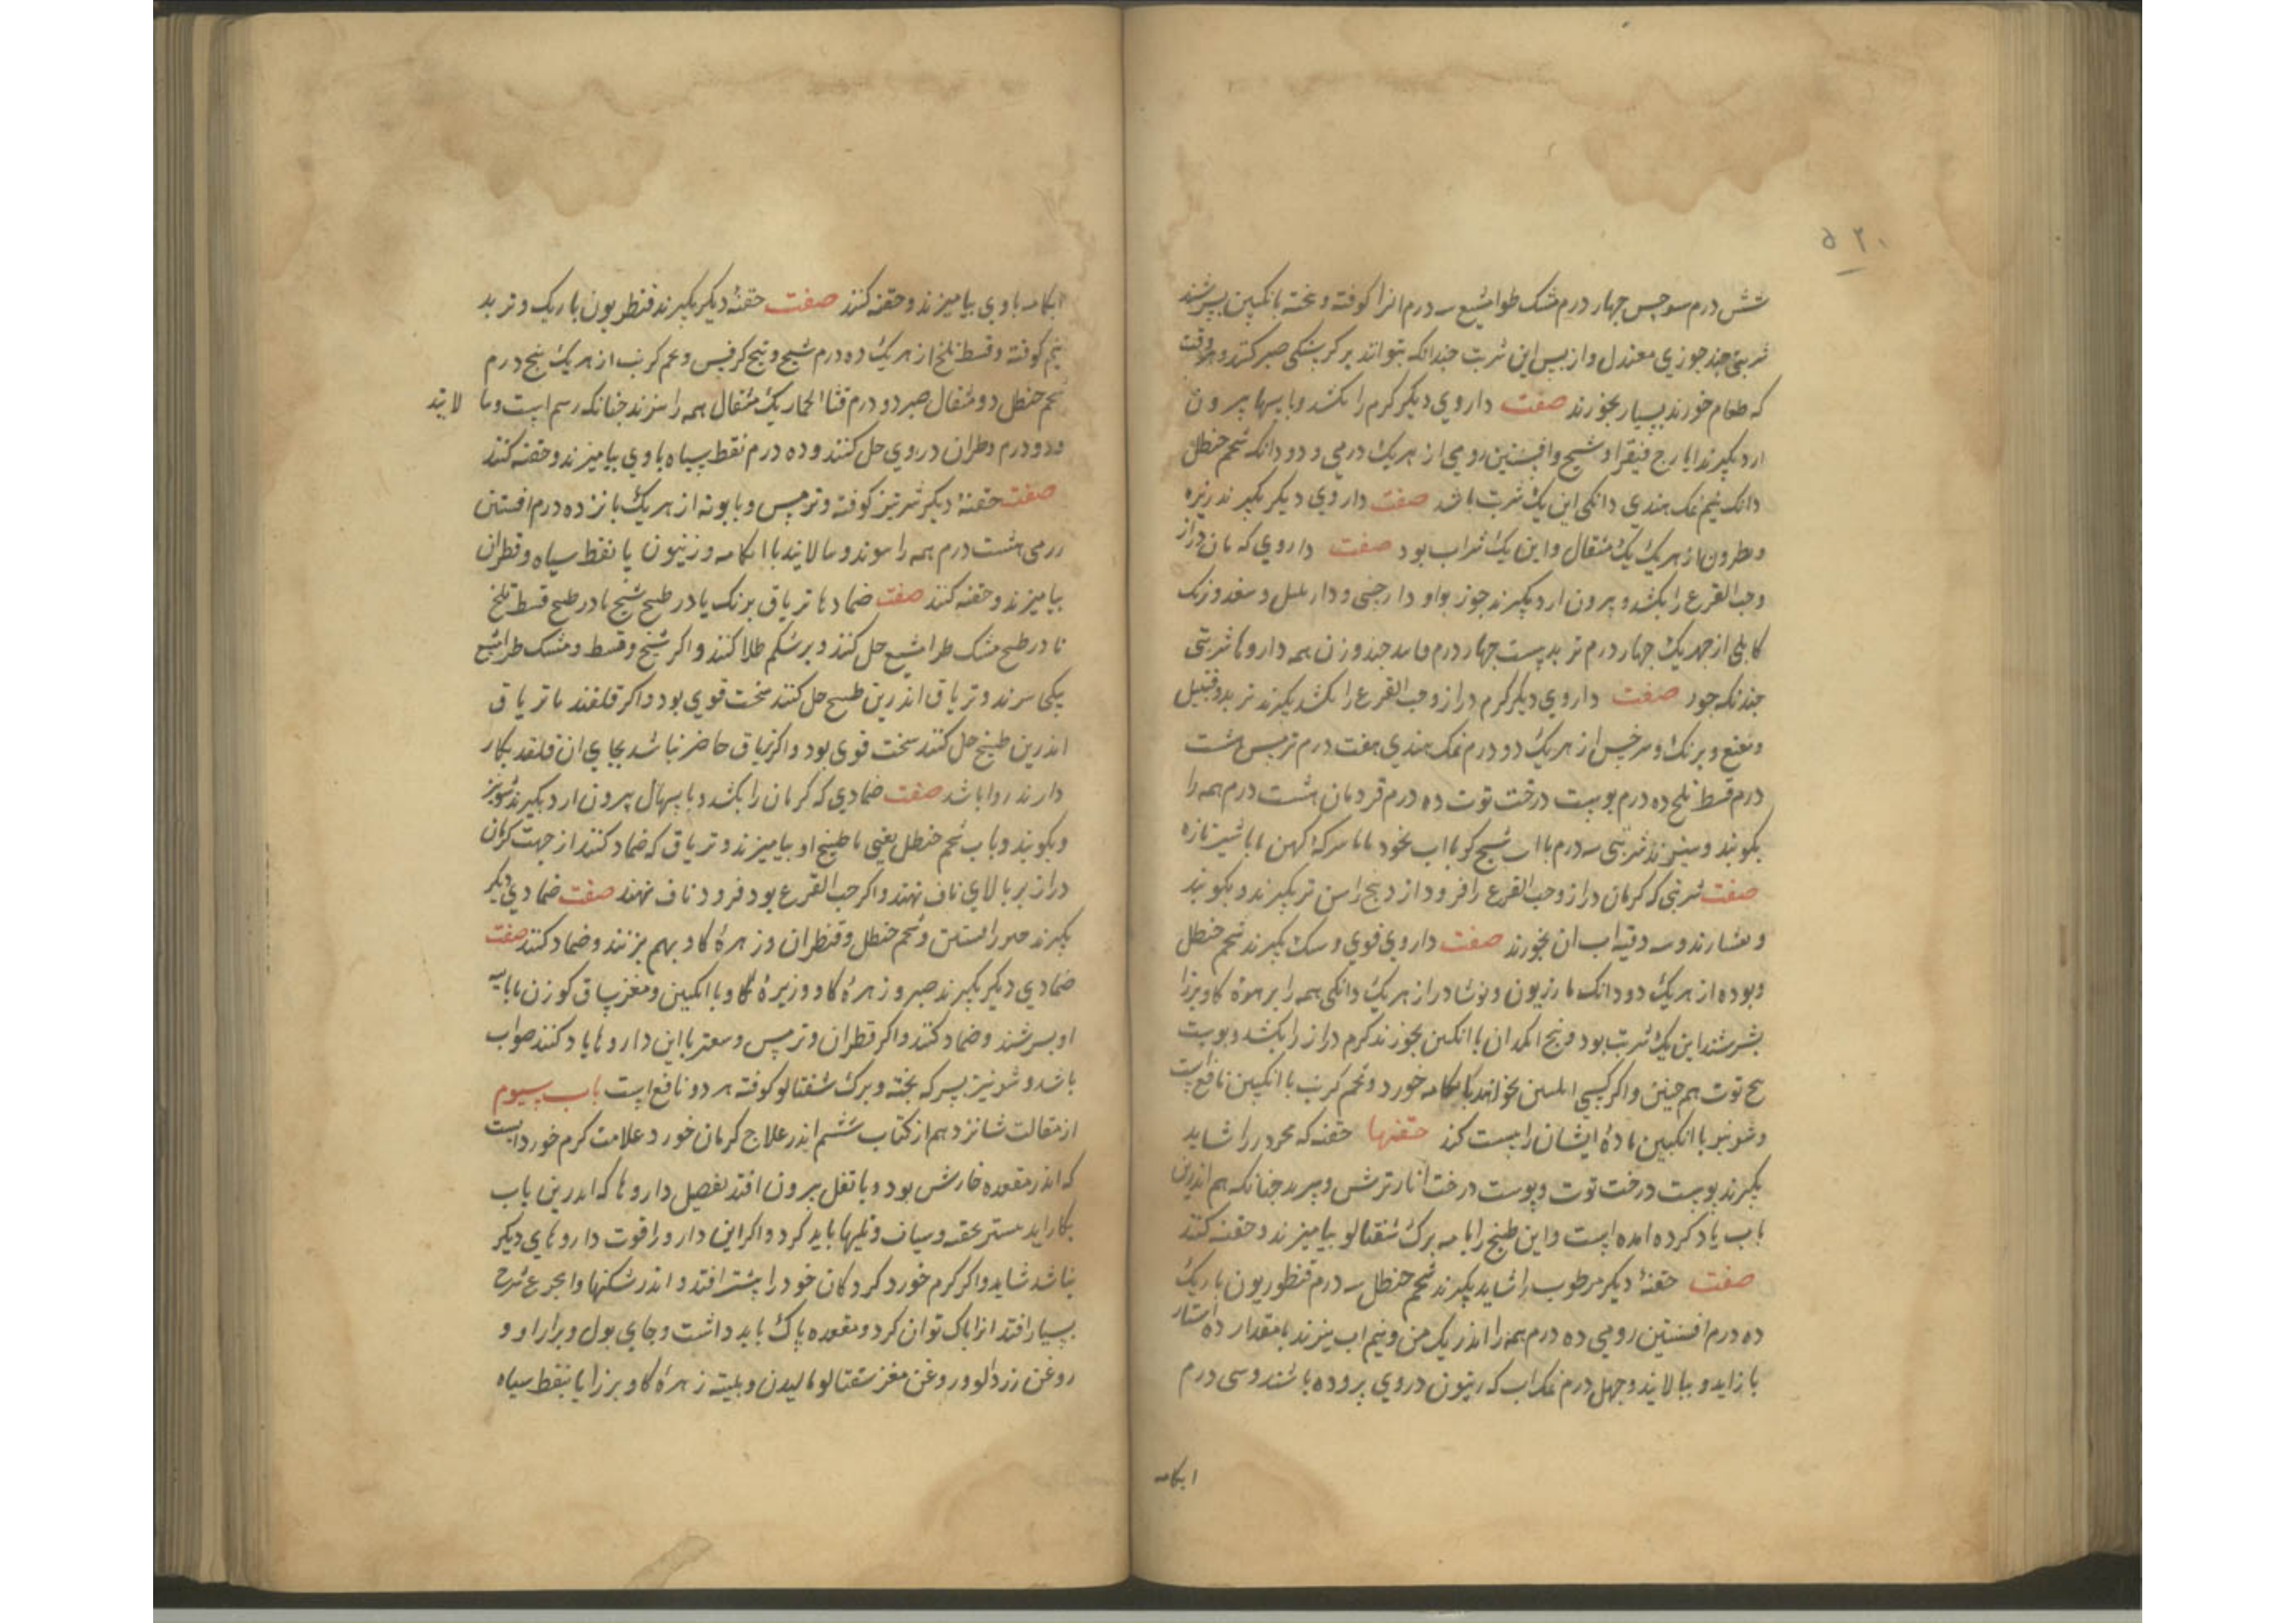 ۵۲۰
شش درم سوحس چهار درم مشک طرامشیع سه درم انرا کوفته و بخته بانکبین بسرشند
شربتی چند جوزی معتدل و از پس این شربت چندانکه بتواند بر کرسنکی صبر کنند و هر وقت
که طعام خورند بسیار بخورند صفت داروی دیکر کرم را بکشد و باسهال بیرون
ارد بکیرند ایارج فیقرا و شیح و افسنتین رومی از هر یک درمی و دو دانکه شحم حنظل
دانک نیم نمک هندی دانکی این یک شربت باشد صفت داروی دیکر بکیرند زیره
و نطرون از هر یک یک مثقال و این یک شراب بود صفت داروی که مان دراز
و حب القرع را بکشد و بیرون ارد بکیرند جوز بوا و دارچینی و دار بلبل و سعد و برنک
کابلی از هر یک چهار درم تربد بیست چهار درم فانید چند وزن همه داروها شربتی
چندنکه جوز صفت داروی دیکر کرم دراز و حب القرع را بکشد بکیرند تربد و قنبیل
و نعنع و برنک و سرخس از هر یک دو درم نمک هندی هفت درم ترمس هشت
درم قسط تلخ ده درم پوست درخت توت ده درم قردمان هشت درم همه را
بکوبند و ببیزند شربتی سه درم با اب شیح کوبا اب نخود یا با سرکهٔ کهن یا با شیر تازه
صفت شربتی که کرمان دراز و حب القرع را فرود ارد بیخ راسن تر بکیرند و بکوبند
و بفشارند و سه وقیه اب ان بخورند صفت داروی قوی و سبک بکیرند شحم حنظل
و بوده از هر یک دو دانک مازریون و نوشادر از هر یک دانکی همه را بزهرهٔ کاو برزا
بسرشند این یک شربت بود و بیخ انجدان با انکبین بخورند کرم دراز را بکشد و پوست
بیخ توت هم چنین و اکر کسی خواهد بابکامه خورد و تخم کرنب با انکبین نافع است
و شونیز با انکبین مادهٔ ایشان را پست کند حقنها حقنه که محرور را شاید
بکیرند پوست درخت توت و پوست درخت انار ترش و بپزند چنانکه هم اندرین
باب یاد کرده امده است و این طبیخ را با سه برک شفتالو بیامیزند و حقنه کنند
صفت حقنهٔ دیکر مرطوب را شاید بکیرند شحم حنظل سه درم قنطوریون باریک
ده درم افسنتین رومی ده درم همه را اندر یک من و نیم اب بپزند تا بمقدار ده استار
باز اید و بپالایند و چهل درم نمکاب که زیتون در وی بروده باشند و سی درم
ابکامه
ابکامه با وی بیامیزند و حقنه کنند صفت حقنهٔ دیکر بکیرند قنطریون باریک و تربد
نیم کوفته و قسط تلخ از هر یک ده درم شیح و بیخ کرفس و تخم کرنب از هر یک پنج درم
شحم حنظل دو مثقال صبر دو درم قثا الحمار یک مثقال همه را بپزند چنانکه رسم است و بپا لایند
و دو درم قطران در وی حل کنند و ده درم نفط سیاه با وی بیامیزند و حقنه کنند
صفت حقنهٔ دیکر شربتیز کوفته و ترمس و بابونه از هر یک پانزده درم افسنتین
رومی هشت درم همه را بپزند و بپالایند با ابکامه و زیتون یا نفط سیاه و قطران
بیامیزند و حقنه کنند صفت ضمادها تریاق بزرک یا در طبیخ شیح یا در طبیخ قسط تلخ
تا در طبیخ مشک طرامشیع حل کنند و بر شکم طلا کنند و اکر شیح و قسط و مشک طرامشیع
بیکی بپزند و تریاق اندرین طبیخ حل کنند سخت قوی بود و اکر قلقند با تریاق
اندرین طبیخ حل کنند سخت قوی بود و اکر تریاق حاضر نباشد بجای ان قلقند بکار
دارند روا باشد صفت ضمادی که کرمان را بکشد و باسهال بیرون ارد بکیرند شونیز
و بکوبند و باب شحم حنظل یعنی با طبیخ او بیامیزند و تریاق که ضماد کنند از جهت کرمان
دراز بر بالای ناف نهند و اکر حب القرع بود فرود ناف نهند صفت ضمادی دیکر
بکیرند صبر و افسنتین و شحم حنظل و قنطران و زهرهٔ کاو بهم بزنند و ضماد کنند صفت
ضمادی دیکر بکیرند صبر و زهرهٔ کاو و زیرهٔ کاو با انکبین و مغز ساق کوزن یا با پیه
او بسرشند و ضماد کنند و اکر قطران و ترمس و سعتر با این داروها یاد کنند صواب
باشد و شونیز بسرکه پخته و برک شفتالو کوفته هر دو نافع است باب سیوم
از مقالت شانزدهم از کتاب ششم اندر علاج کرمان خورد علامت کرم خورد انست
که اندر مقعده خارش بود و با ثفل بیرون افتد تفصیل داروها که اندرین باب
بکار اید بیشتر بحقنه و سیاف و فتیلها باید کرد و اکر این دارو را قوت داروهای دیکر
نباشد شاید و اکر کرم خورد کردکان خود را بیشتر افتد و اندر شکنها
بسیار افتد انرا پاک توان کرد و مقعده پاک باید داشت و جای بول و براز او و
روغن زردالو و روغن مغز شفتالو مالیدن و بلیته زهرهٔ کاو برزا یا بنفط سیاه